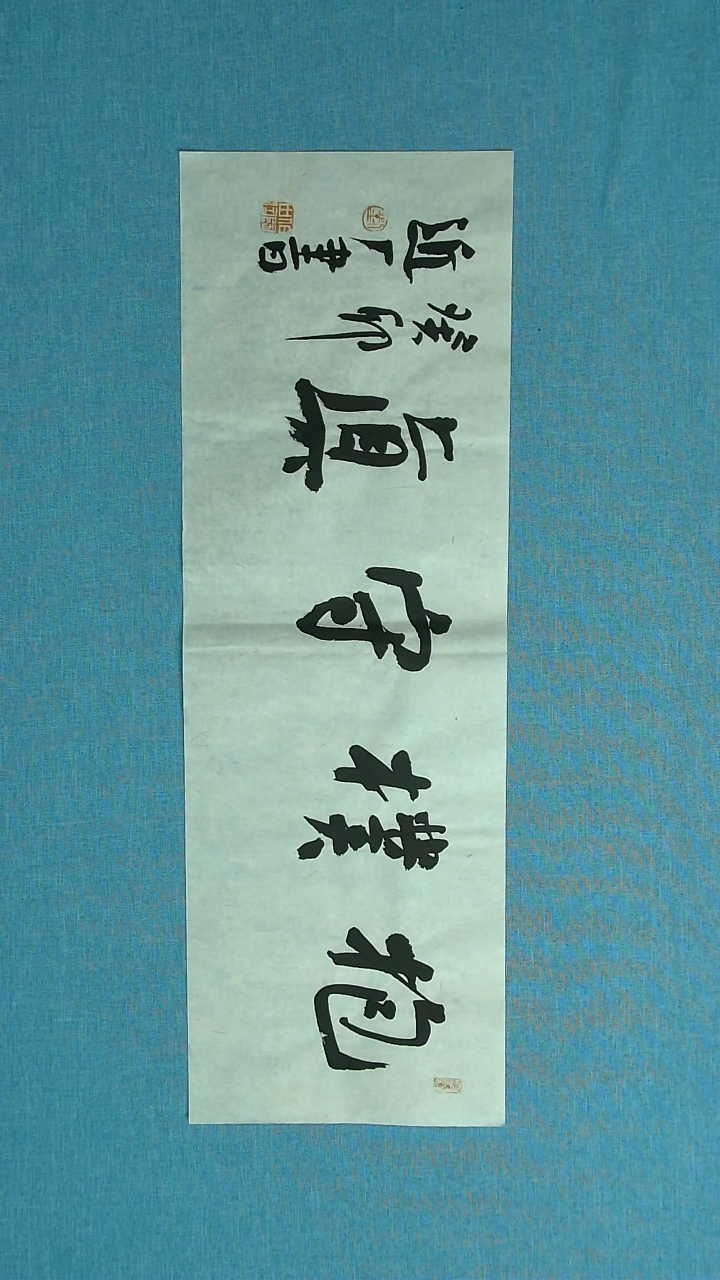 抱樸守真
癸卯
厂書